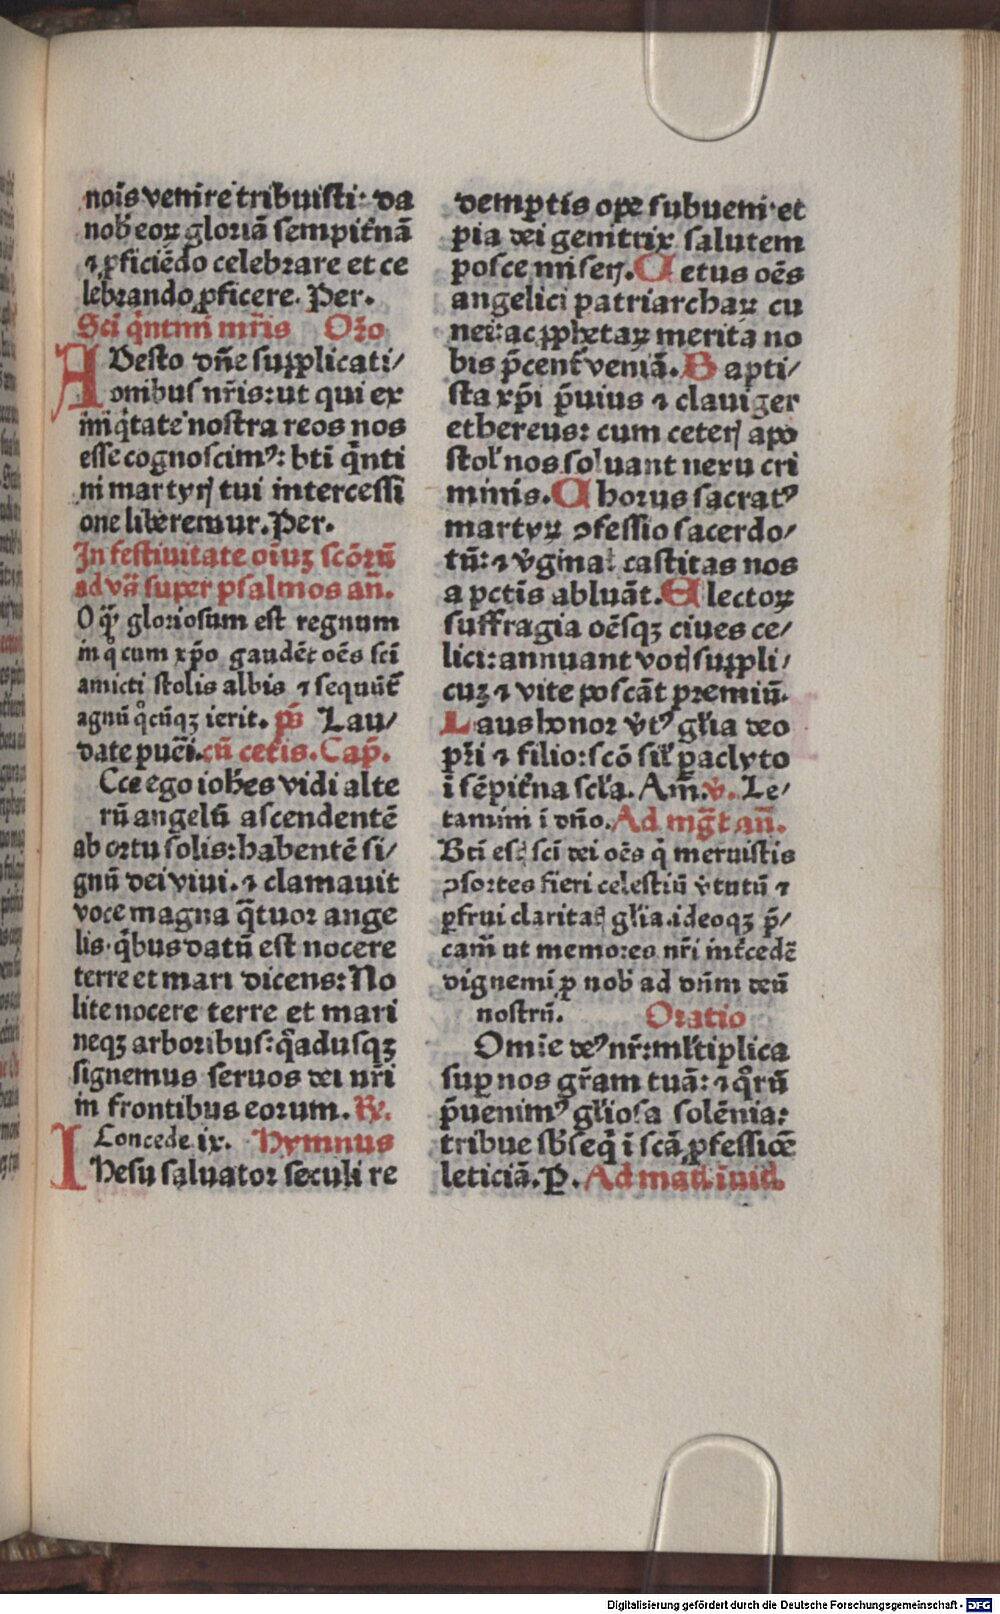 noīs venire tribuisti: da
nob̄ eoꝝ gloriā sempit̄nā
⁊ ꝓficiēdo celebrare et ce
lebrando ꝓficere. Per.
Sc̄i q̄ntini mr̄is Or̄o
ADesto dn̄e supplicati/
onibus nr̄is: ut qui ex
iniq̄tate nostra reos nos
esse cognoscimꝰ: bt̄i q̄nti
ni martyrꝭ tui intercessi
one liberemur. Per.
In festiuitate oīuꝫ scōrū
ad vs̄ super psalmos an̄.
O q̄ꝫ gloriosum est regnum
in q̊ cum xp̄o gaudēt oēs sc̄i
amicti stolis albis ⁊ sequūt̄
agnū q̊cūqꝫ ierit. ps̄ Lau/
date puēi. cū cetis. Cap̄.
Cce ego ioh̄es vidi alte
rū angelū ascendentē
ab ortu solis: habentē si/
gnū dei viui. ⁊ clamauit
voce magna q̄tuor ange
lis. q̄bus datū est nocere
terre et mari dicens: No
lite nocere terre et mari
neqꝫ arboribus: q̄adusqꝫ
signemus seruos dei nr̄i
in frontibus eorum. ℟.
Concede. ix. Hymnus
IHesu saluator seculi re
demptis ope subueni. et
pia dei genitrix salutem
posce miserꝭ. Cetus oēs
angelici patriarchaꝝ cu
nei: ac ꝓphetaꝝ merita no
bis p̄cent̄ veniā. Bapti/
sta xp̄i p̄uius ⁊ clauiger
ethereus: cum ceterꝭ apo
stol̄ nos soluant nexu cri
minis. Chorus sacratꝰ
martyꝝ ꝯfessio sacerdo/
tū: ⁊ v̄ginal castitas nos
a pctīs abluāt. Electoꝝ
suffragia oēsqꝫ ciues ce/
lici: annuant votꝭ suppli/
cuꝫ ⁊ vite poscāt premiū.
Laus honor v̄tꝰ gl̄ia deo
pr̄i ⁊ filio: scō sil̄ paclyto
ī sēpit̄na scl̄a. Am̄. v̄. Le/
tamini ī dn̄o. Ad mḡt an̄.
Bt̄i estꝭ sc̄i dei oēs q̄ meruistis
ꝯsortes fieri celestiū v̄tutū ⁊
ꝑfrui claritatꝭ gl̄ia. ideoqꝫ p̄/
cam̄ ut memores nr̄i int̄cedē
dignemī ꝓ nob̄ ad dn̄m deū
nostrū. Oratio
Omīe deꝰ nr̄: ml̄tiplica
suꝑ nos gr̄am tuā: ⁊ q̊rū
p̄uenimꝰ gl̄iosa solēnia:
tribue sb̄seq̄ ī scā ꝓfessiōe
leticiā. P. Ad matꝭ. īuitꝭ.